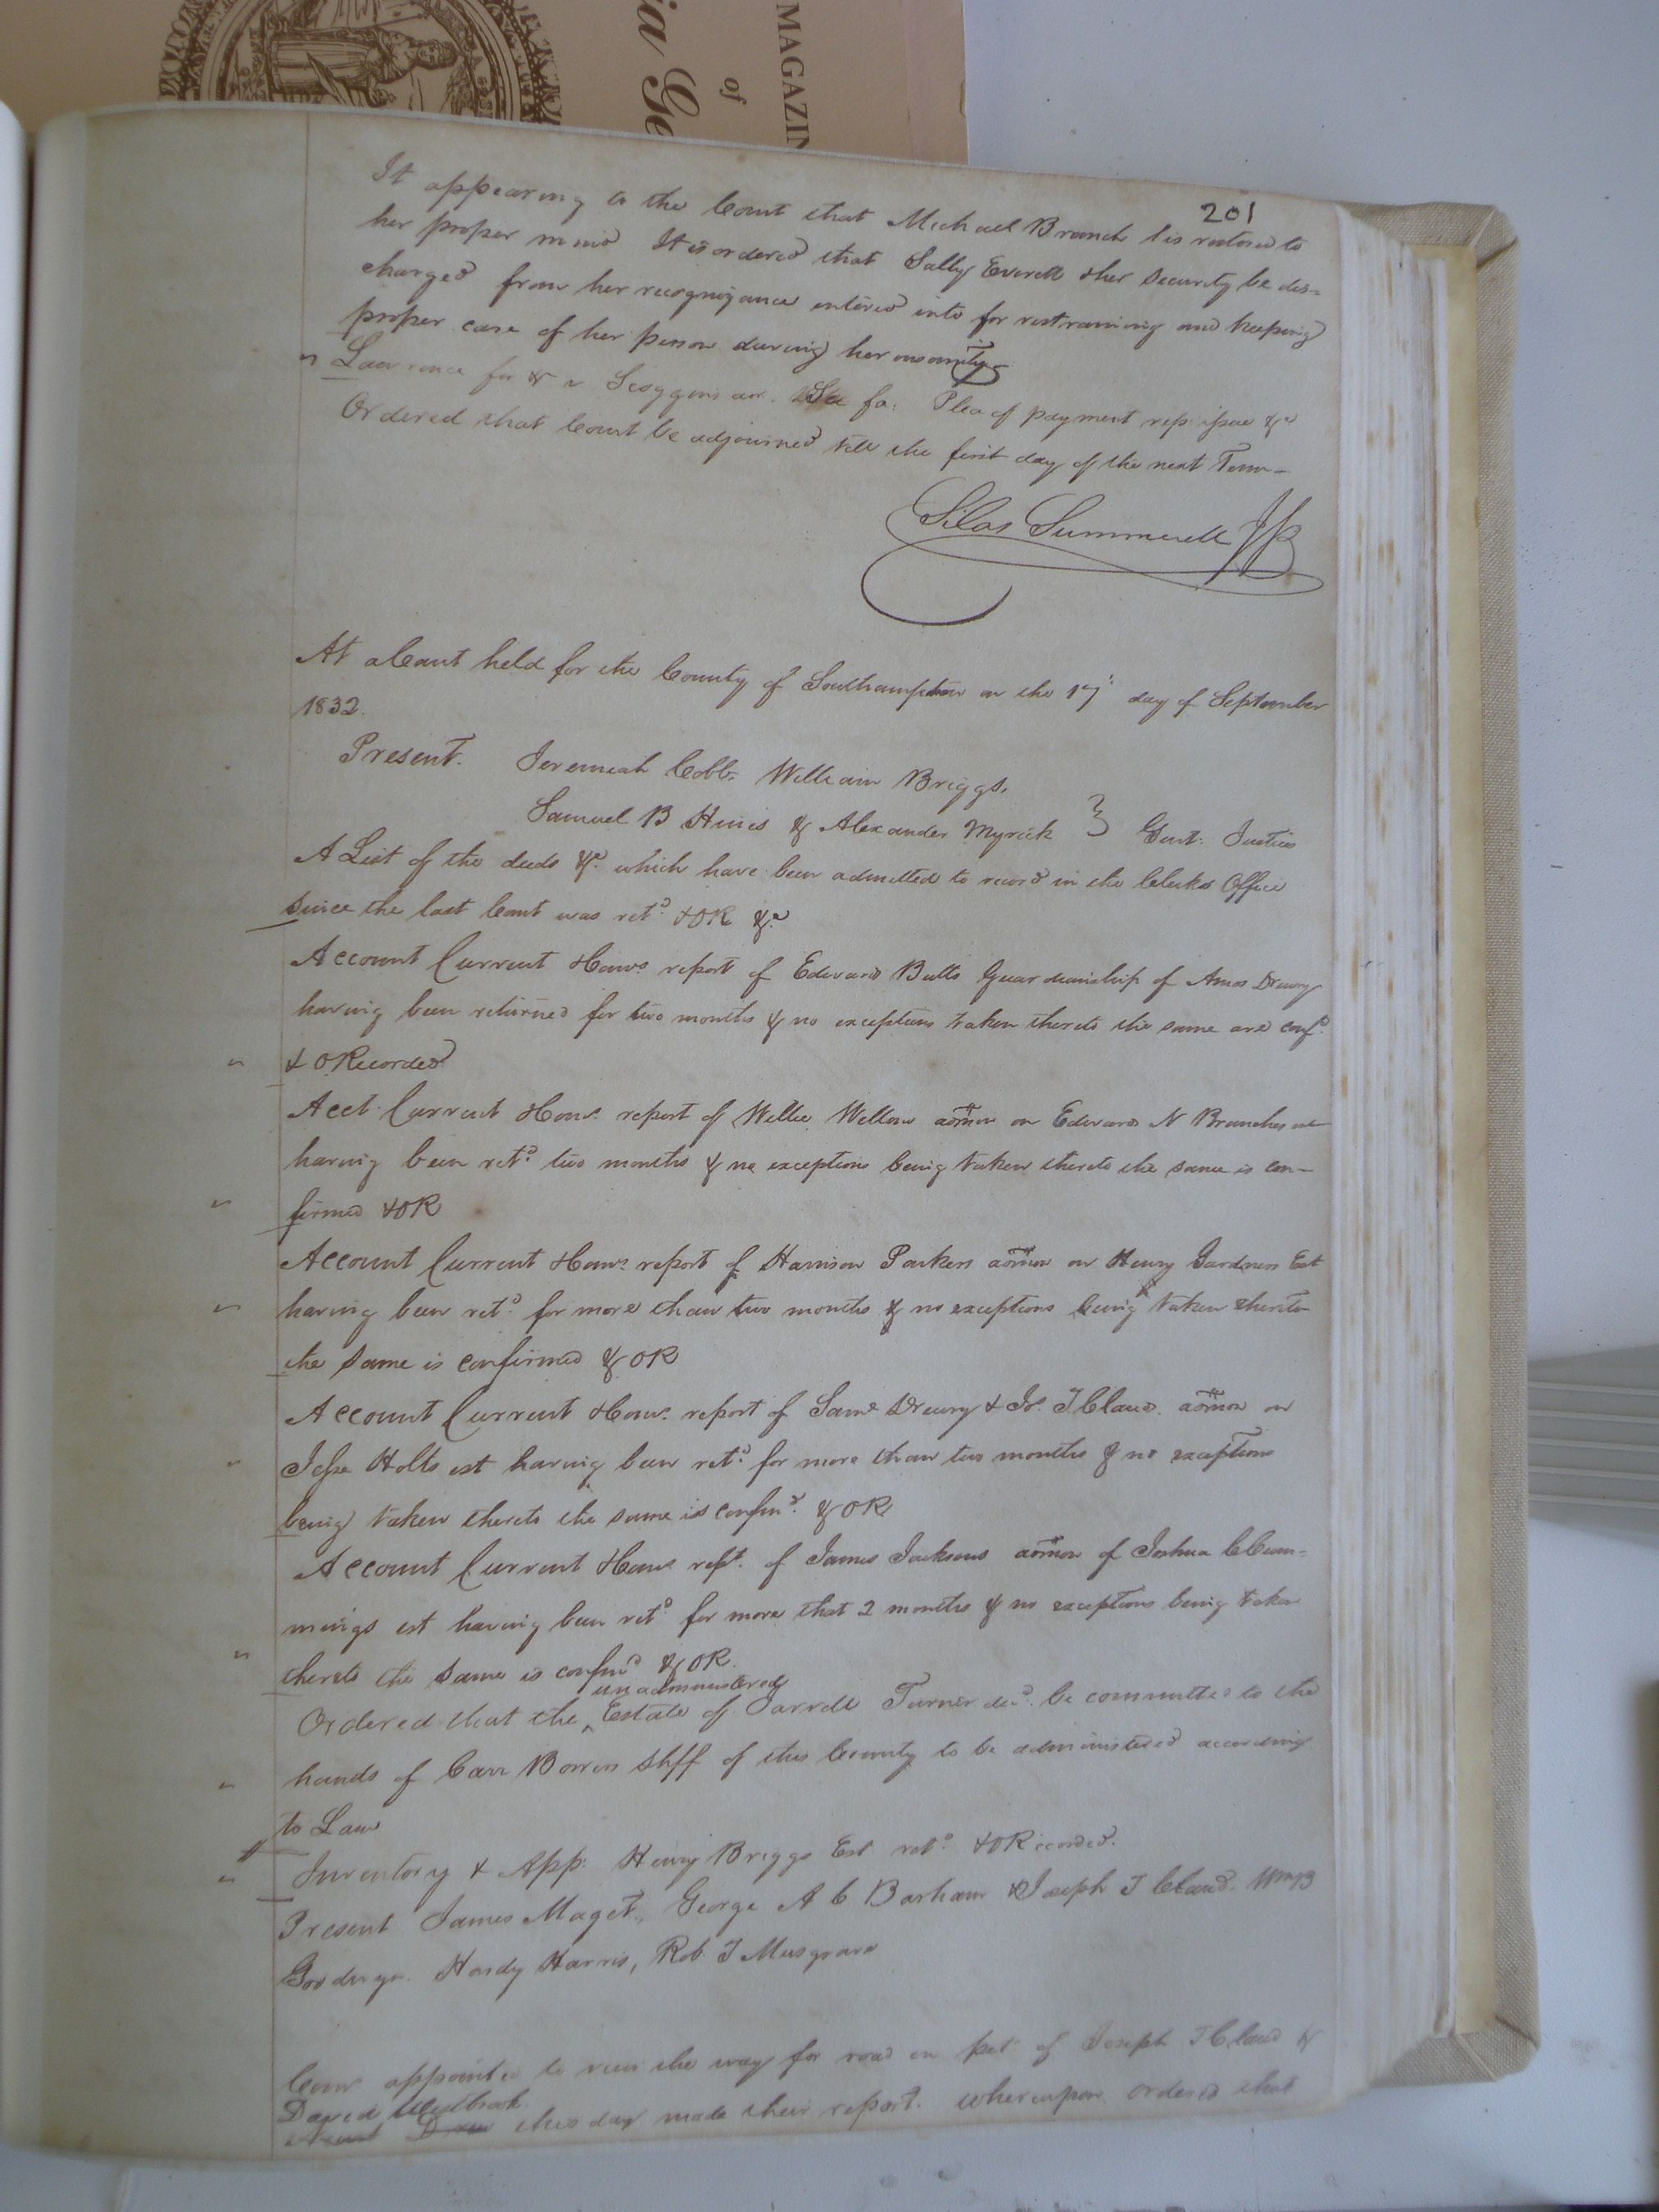 MAGAZIN
of
ia Ge
201
It appearing to the Court that Michael Branch is restored to
her proper mind It is ordered that Sally Everett & her Security be dis=
charged from her recognizance entered into for restraining and keeping
proper care of her person during her insanity
Lawrence for &c v Scoggins adr. Sci fa. Plea of payment rep issue &c
Ordered that Court be adjourned till the first day of the next Term—
Silas Summerell JP
At a Court held for the County of Southampton on the 17th day of September
1832.
Present. Jeremiah Cobb, William Briggs,
Samuel B Hines & Alexander Myrick } Gent. Justices
A List of the deeds &c. which have been admitted to record in the Clerks Office
since the last Court was retd. & OR &c
Account Current & Coms report of Edward Butts Guardianship of Amos Drewry
having been returned for two months & no exceptions taken thereto the same are confd.
& O Recorded
Acct. Current & Coms. report of Willie Wellons admon on Edward N Branches est
having been retd. two months & no exceptions being taken thereto the same is con—
firmed & OR
Account Current & Coms. report of Harrison Parkers admon on Henry Gardners Est
having been retd. for more than two months & no exceptions being taken thereto
the same is confirmed & OR
Account Current & Coms. report of Saml Drewry & Js. T Claud. admon on
Jesse Holts est having been retd. for more than two months & no exceptions
being taken thereto the same is confmd. & OR
Account Current & Coms rept. of James Jacksons admon of Joshua C Cum=
mings est having been retd. for more that 2 months & no exceptions being taken
thereto the same is confmd & OR.
unadministered
Ordered that the ^ Estate of Jarrell Turner decd. be committed to the
hands of Carr Bowers Shff of this County to be administered according
to Law
Inventory & App. Henry Briggs Est retd. & O Recorded.
Present James Maget, George A C Barham & Joseph T Claud. Wm B
Goodwyn. Hardy Harris, Rob T Musgrave
Coms appointed to view the way for road on pet of Joseph T Claud &
David Westbrook
this day made their report. whereupon ordered that